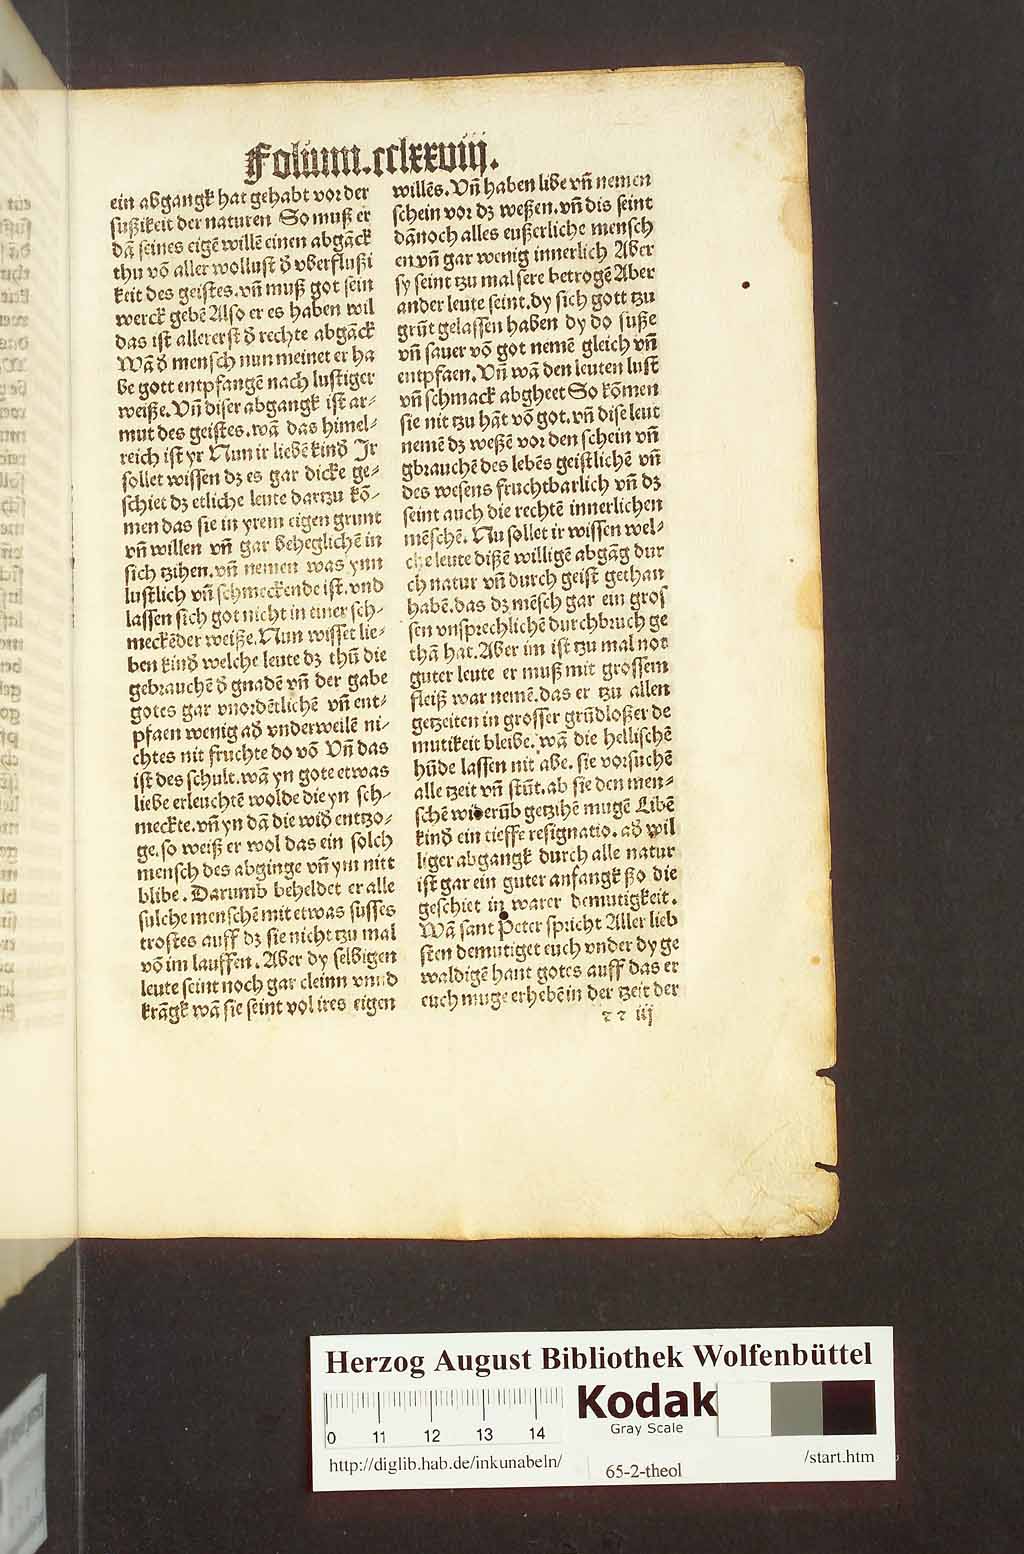 Folium.cclxxviij.
ein abgangk hat gehabt vor der
sußikeit der naturen So muß er
dā seines eigē willē einen abgāck
thu vō aller wollust d̄ vberflußi
keit des geistes.vn̄ muß got sein
werck gebē Also er es haben wil
das ist allererst d̄ rechte abgāck
Wā d̄ mensch nun meinet er ha
be gott entpfangē nach lustiger
weiße.Vn̄ diser abgangk ist ar⸗
mut des geistes.wā das himel⸗
reich ist yr Nun ir liebē kind̄ Jr
sollet wissen dz es gar dicke ge⸗
schiet dz etliche leute dartzu kō⸗
men das sie in yrem eigen grunt
vn̄ willen vn̄ gar beheglichē in
sich tzihen.vn̄ nemen was ynn
lustlich vn̄ schmeckende ist.vnd
lassen sich got nicht in einer sch⸗
meckēder weiße.Nun wisset lie⸗
ben kind̄ welche leute dz thū die
gebrauchē d̄ gnadē vn̄ der gabe
gotes gar vnordētlichē vn̄ ent⸗
pfaen wenig ad̄ vnderweilē ni⸗
chtes nit fruchte do vō Vn̄ das
ist des schult.wā yn gote etwas
liebe erleuchtē wolde die yn sch⸗
meckte.vn̄ yn dā die wid̄ entzo⸗
ge.so weiß er wol das ein solch
mensch des abginge vn̄ ym nitt
blibe.Darumb beheldet er alle
sulche menschē mit etwas susses
trostes auff dz sie nicht tzu mal
vō im lauffen.Aber dy selbigen
leute seint noch gar cleinn vnnd
krāgk wā sie seint vol ires eigen
willēs.Vn̄ haben libe vn̄ nemen
schein vor dz weßen.vn̄ dis seint
dānoch alles eußerliche mensch
en.vn̄ gar wenig innerlich Aber
sy seint tzu mal sere betrogē Aber
ander leute seint.dy sich gott tzu
grūt gelassen haben dy do suße
vn̄ sauer vō got nemē gleich vn̄
entpfaen.Vn̄ wā den leuten lust
vn̄ schmack abgheet So kōmen
sie nit tzu hāt vō got.vn̄ dise leut
nemē dz weßē vor den schein vn̄
gbrauchē des lebēs geistlichē vn̄
des wesens fruchtbarlich vn̄ dz
seint auch die rechtē innerlichen
mēschē. Nu sollet ir wissen wel⸗
che leute dißē willigē abgāg dur
ch natur vn̄ durch geist gethan
habē.das dz mēsch gar ein gros
sen vnsprechlichē durchbruch ge
thā hat.Aber im ist tzu mal not
guter leute er muß mit grossem
fleiß war nemē.das er tzu allen
getzeiten in grosser grūdloßer de
mutikeit bleibe.wā die hellischē
hūde lassen nit abe. sie vorsuchē
alle tzeit vn̄ stūt.ab sie den men⸗
schē widerūb getzihē mugē Libē
kind̄ ein tieffe resignatio.ad̄ wil
liger abgangk durch alle natur
ist gar ein guter anfangk ßo die
geschiet in warer demutigkeit.
Wā sant Peter spricht Aller lieb
sten demutiget euch vnder dy ge
waldigē hant gotes auff das er
euch muge erhebē in der tzeit der
ꝛ ꝛ iij
Herzog August Bibliothek Wolfenbüttel
0 11 12 13 14
Kodak
Gray Scale
http://diglib.hab.de/inkunabeln/
65-2-theol
/start.htm